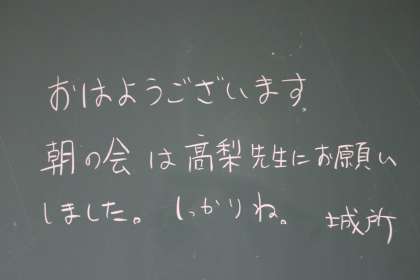 おはようございます
朝の会は高梨先生にお願い
しました。しっかりね。 城所